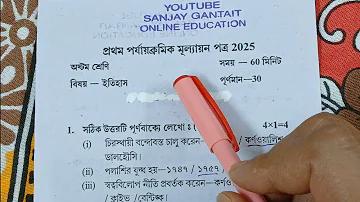 YOUTUBE
SANJAY GANTAIT
ONLINE EDUCATION
প্রথম পর্যায়ক্রমিক মূল্যায়ন পত্র 2025
অষ্টম শ্রেণি
সময় — 60 মিনিট
বিষয় — ইতিহাস
পূর্ণমান—30
1. সঠিক উত্তরটি পূর্ণবাক্যে লেখো :
4×1=4
(i) চিরস্থায়ী বন্দোবস্ত চালু করেন— / কর্ণওয়ালিশ
ডালহৌসি।
(ii) পলাশির যুদ্ধ হয়—১৭৪৭ / ১৭৫৭
(iii) স্বত্ববিলোপ নীতি প্রবর্তক করেন—
/ ক্লাইভ / বেন্টিঙ্ক।